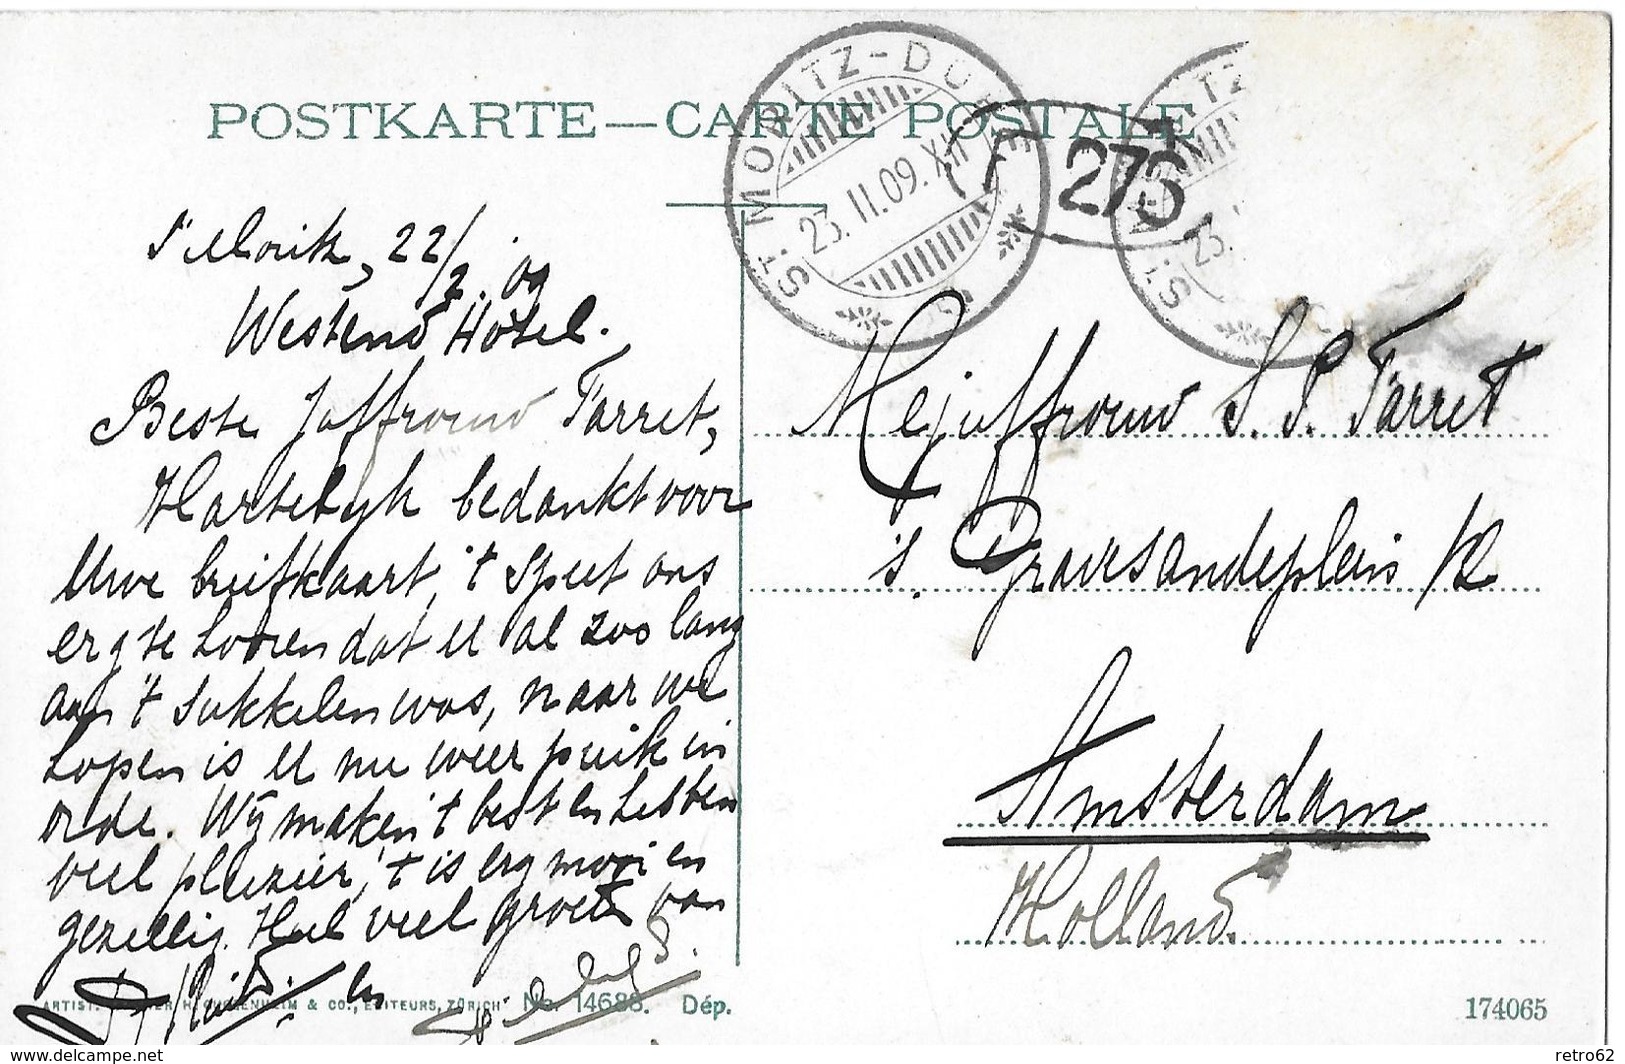 POSTKARTE—CARTE POSTALE
ST. MORITZ-DORF
23. II. 09. XII
273
St Moritz, 22/2. 09
Westend Hôtel.
Beste Juffrouw Tarret,
Hartelijk bedankt voor
Uwe briefkaart, 't speet ons
erg te hooren dat U al zoo lang
aan 't sukkelen was, naar we
hopen is U nu weer puik in
orde. Wij maken 't best en hebben
veel plezier, 't is erg mooi en
gezellig. Heel veel groeten van
en
Mejuffrouw S. P. Tarret
's Gravesandeplein 12
Amsterdam
Holland.
& CO., EDITEURS, ZÜRICH No. 14688. Dép.
174065
www.delcampe.net
retro62